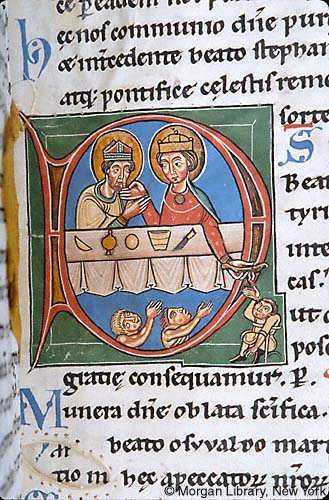 ce p
hec nos communio dñe pur
ce intercedente beato stephan
atq; pontifice celestis reme
sorte
S
Beat
tyri
inte
cas.
ut c
pos
gratię consequamur. P.
Munera dñe oblata scifica.
beato osvualdo mart
tio in hec a peccatorꝝ nror
© Morgan Library, New York